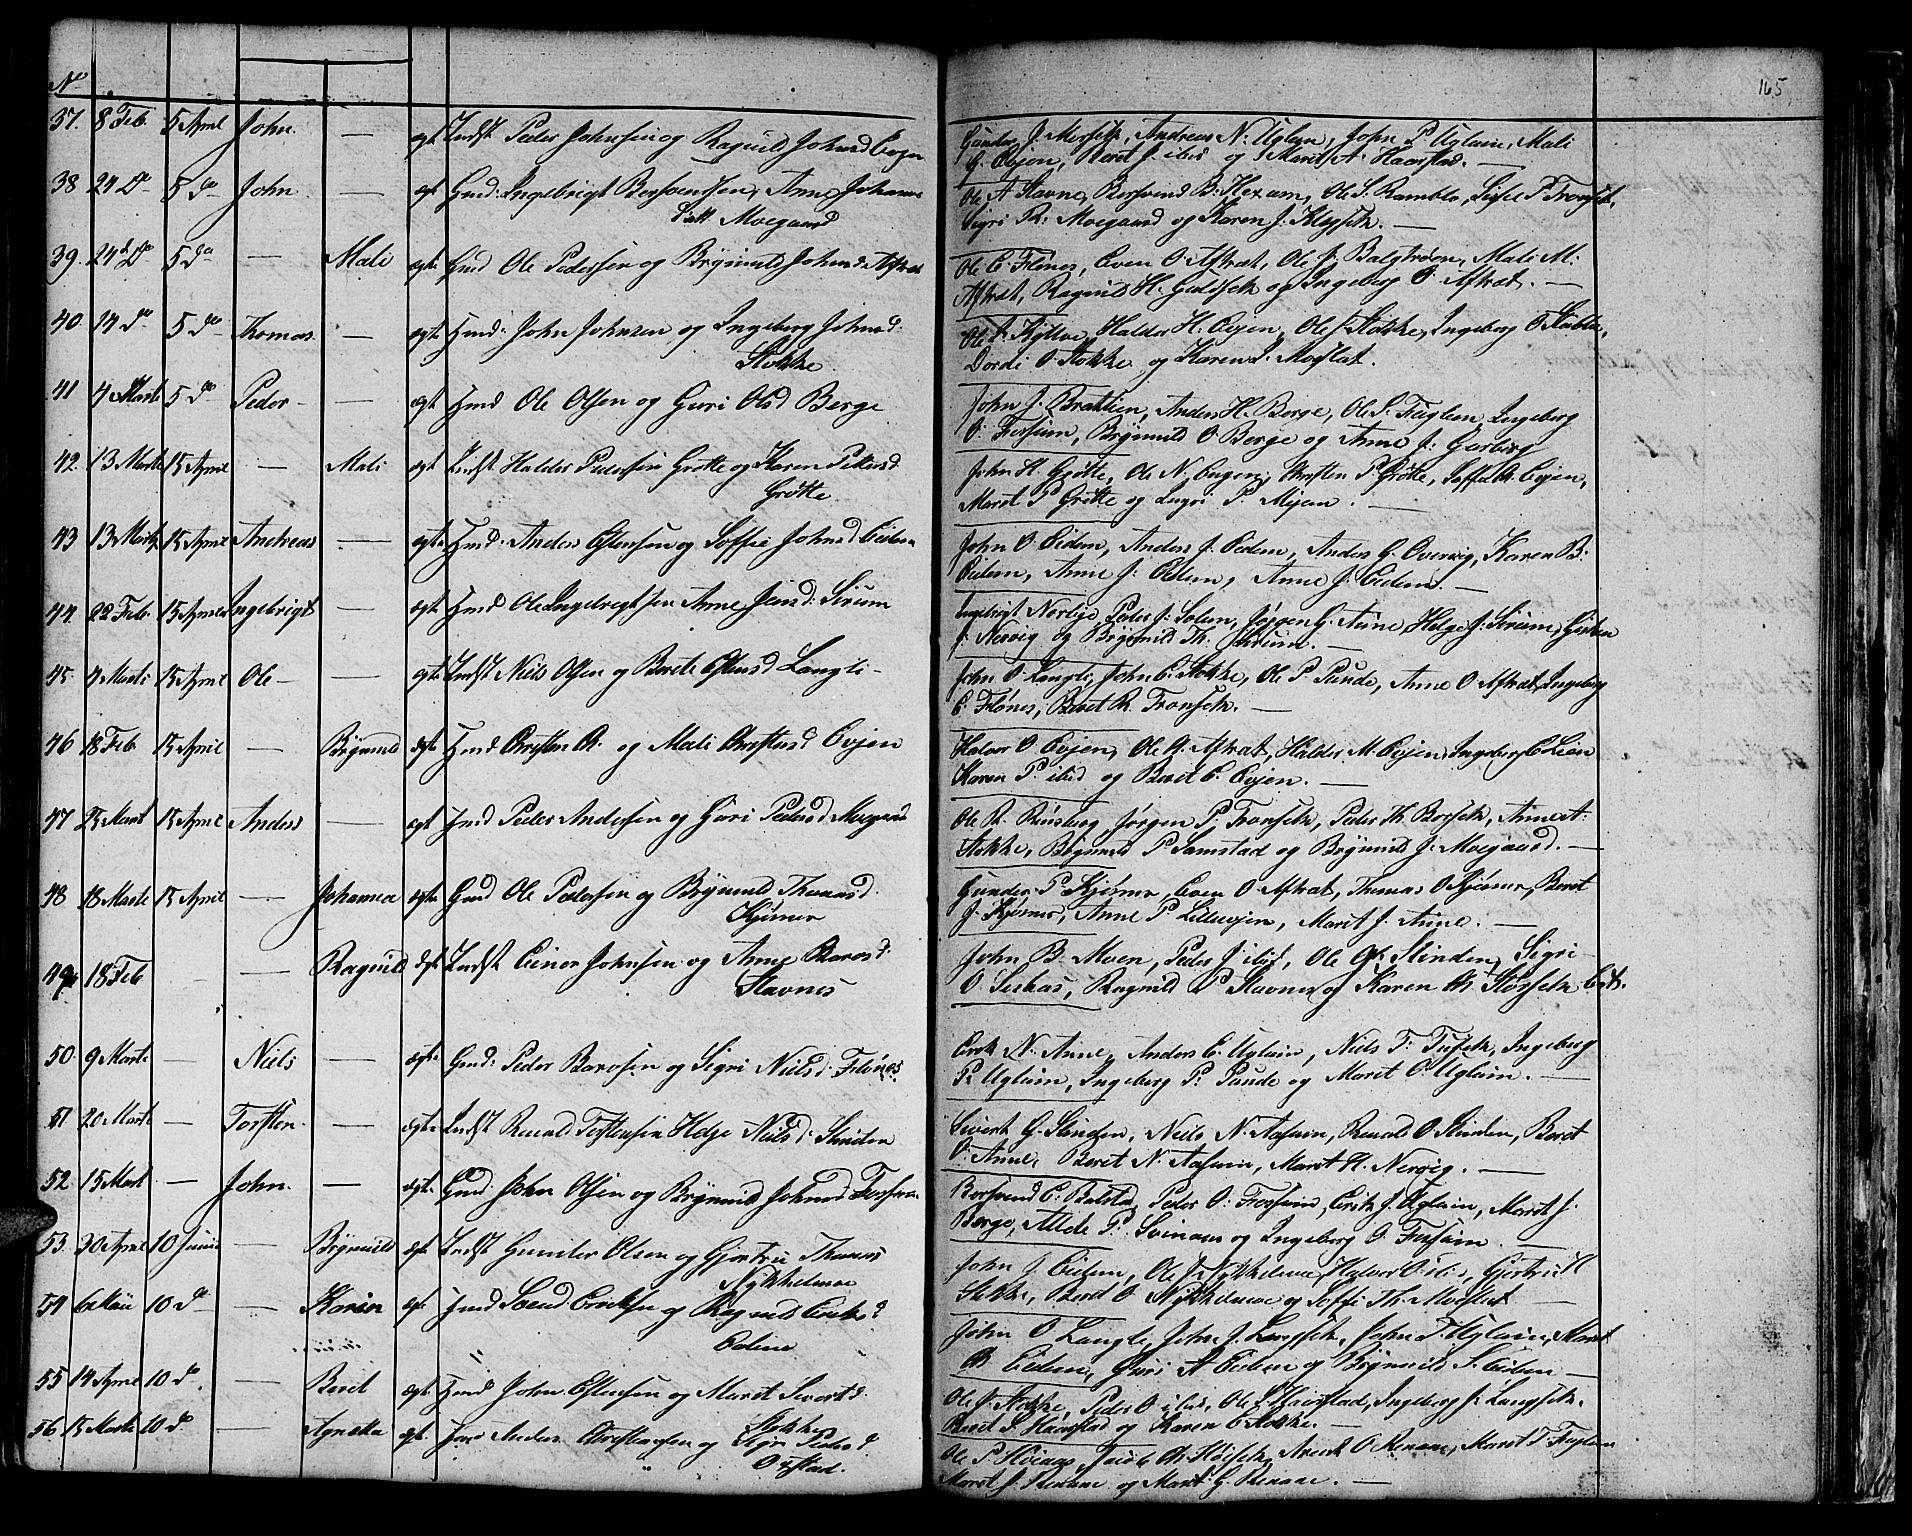 No
165
37. 8 Feb. 5 April John. — ægt. Indst Peder Johnsen og Ragnild Johnsd Evjen
Gunder J. Morseth, Andreas N. Uglem, John P. Uglem, Mali
G. Evjen, Beret J. ibid og Maret A. Haarstad. —
38 24 Do 5 do John — ægt Gmd: Ingebrigt Bersvensen, Anne Johanns
Datt Moegaard
Ole A Stavne, Bersvend B: Hexam, Ole S. Rambla, Sissel P Tronseth,
Sigri R: Moegaard og Karen J: Klegseth. —
39. 24d Do 5 do — Mali ægt Gmd Ole Pedersen og Brynnild Johnsd: Aftræt
Ole E. Flønes, Even O Aftræt, Ole J. Balstrøen, Mali M:
Aftræt, Ragnild H. Guldseth og Ingeborg O Aftræt. —
40. 14 do 5 do Thomas — ægt. Hmd: John Johnsen og Ingeborg Johnsd:
Stokke
Ole S. Kylloe, Haldor H. Evjen, Ole J Stokke, Ingeborg T Stubbe,
Dordi O. Stokke og Karen L. Moslæt.
41 4 Marts 5 do Peder — ægt. Hmd Ole Olsen og Guri Olsd Berge
John J. Brattlien, Anders H. Berge, Ole S. Fuglem, Ingeborg
O. Forsum, Brynnild O Berge og Anne J. Garberg
42. 13 Marts 15 April — Mali ægt Indst Haldor Pedersen Grøtte og Karen Petersd
Grøtte
John H. Grøtte, Ole N. Engen, Christen P. Grøtte, Soffi Ch Evjen,
Maret P Grøtte og Ingri P. Mejan. —
43 13 Marts 15 April Andreas — ægt. Hmd: Anders Estensen og Soffie Johnsd Eidem
John O Eidem, Anders J. Eidem, Anders G. Overvig, Karen B:
Eidem, Anne J: Eidem, Anne J. Eidem. —
44. 22 Feb. 15 April Ingebrigt — ægt. Hmd Ole Ingebrigtsen Anne Jensd: Sirum
Ingebrigt Norlige, Peder J. Solem, Jørgen G. Aune, Helge J. Sirum, Girken
J. Nervig og Brynnild Th. Sirum. —
45. 4 Marts 15 April Ole — — ægt. Indst Niels Olsen og Berete Estensd Langli —
John O Langli, John E. Stokke, Ole P. Punde, Anne O Aftræt, Ingeborg
E. Flønes, Beret R. Tronseth. —
46 18 Feb 15 April — Brynnild ægt. Hmd Christen Ch. og Mali Christensd Evjen
Halvor O Evjen, Ole A. Aftræt, Haldor M. Evjen, Ingeborg E Lien
Karen P. ibid og Beret E. Evjen. —
47 25 Mart 15 April Anders — ægt Hmd Peder Andersen og Guri Pedersd Moegaard
Ole R. Rønsberg, Jørgen P. Tronseth, Peder Th. Borseth, Anne A.
Stokke, Brynnild P. Samstad og Brynnild J. Moegaard. —
48 18 Marts 15 April — Johanna ægt. Gmd Ole Pedersen og Brynnild Thomasd.
Kjøsner
Gunder P. Kjøsner, Even O. Aftræt, Thomas O Kjøsner, Beret
J. Kjøsner, Anne P. Lilleevjen, Maret J. Aune. —
49 18 Feb — — Ragnild ægt. Indst Einar Johnsen og Anne Barosd.
Stavnes
John B. Moen, Peder J. ibid, Ole Ch. Slinden, Sigri
O. Serkas, Ragnild P Stavnes og Karen Ch Storseth Ects.
50. 9 Marts — Niels — ægt. Gmd: Peder Barosen og Sigri Nielsd: Flønes
Erik N. Aune, Anders E. Uglem, Niels T: Tuseth, Ingeborg
P. Uglum, Ingeborg P. Punde og Maret O. Uglem. —
51 20 Marts — Torsten — ægt. Indst Renald Torstensen Helge Nielsd: Slinden
Sivert G. Slinden, Niels N. Aasuin, Renald O Slinden, Beret
O. Aune, Beret N. Aasuin, Maret H. Nervig. —
52 15 Mart — John. — ægt. Gmd: John Olsen og Brynnild Johnsd Forsum
Bersvend E. Balstad, Peder O. Forsum, Erik J. Uglem, Maret J.
Berge, Alede P. Svinaas og Ingeborg O. Forsum.
53. 30 April 10 Junii — Brynnild ægt. Indst Gunder Olsen og Gjertru Thomas
Nykkelmoe
John J. Eidem, Ole J Nykkelmoe, Halvor O ibid, Gjertru H
Stokke, Beret O Nykkelmoe og Soffi Th. Moslæt
54 6 Maii 10 Do — Karen ægt. Hmd Svend Eriksen og Ragnild Eriksd
Eidem
John O Langli, John J. Langseth, John T. Uglem, Maret
Ch Eidem, Guri A Eidem og Brynnild S. Eidem —
55 14 April 10 Do. — Beret ægt. Hmd John Estensen og Maret Sivertsd.
Stokke
Ole J. Stokke, Peder O ibid, Ole S. Haarstad, Ingeborg J. Langseth,
Beret S. Haarstad og Karen E Stokke. —
56. 15 Marts 10 Do — Agnetta ægt. Anders Christensen og Sigri Pedersd
Ole P. Svinaas, Jacob Ch. Hølseth, Arent O Renaae, Maret T. Fuglem
Maret J. Renaae og Maret G. Renaae. —